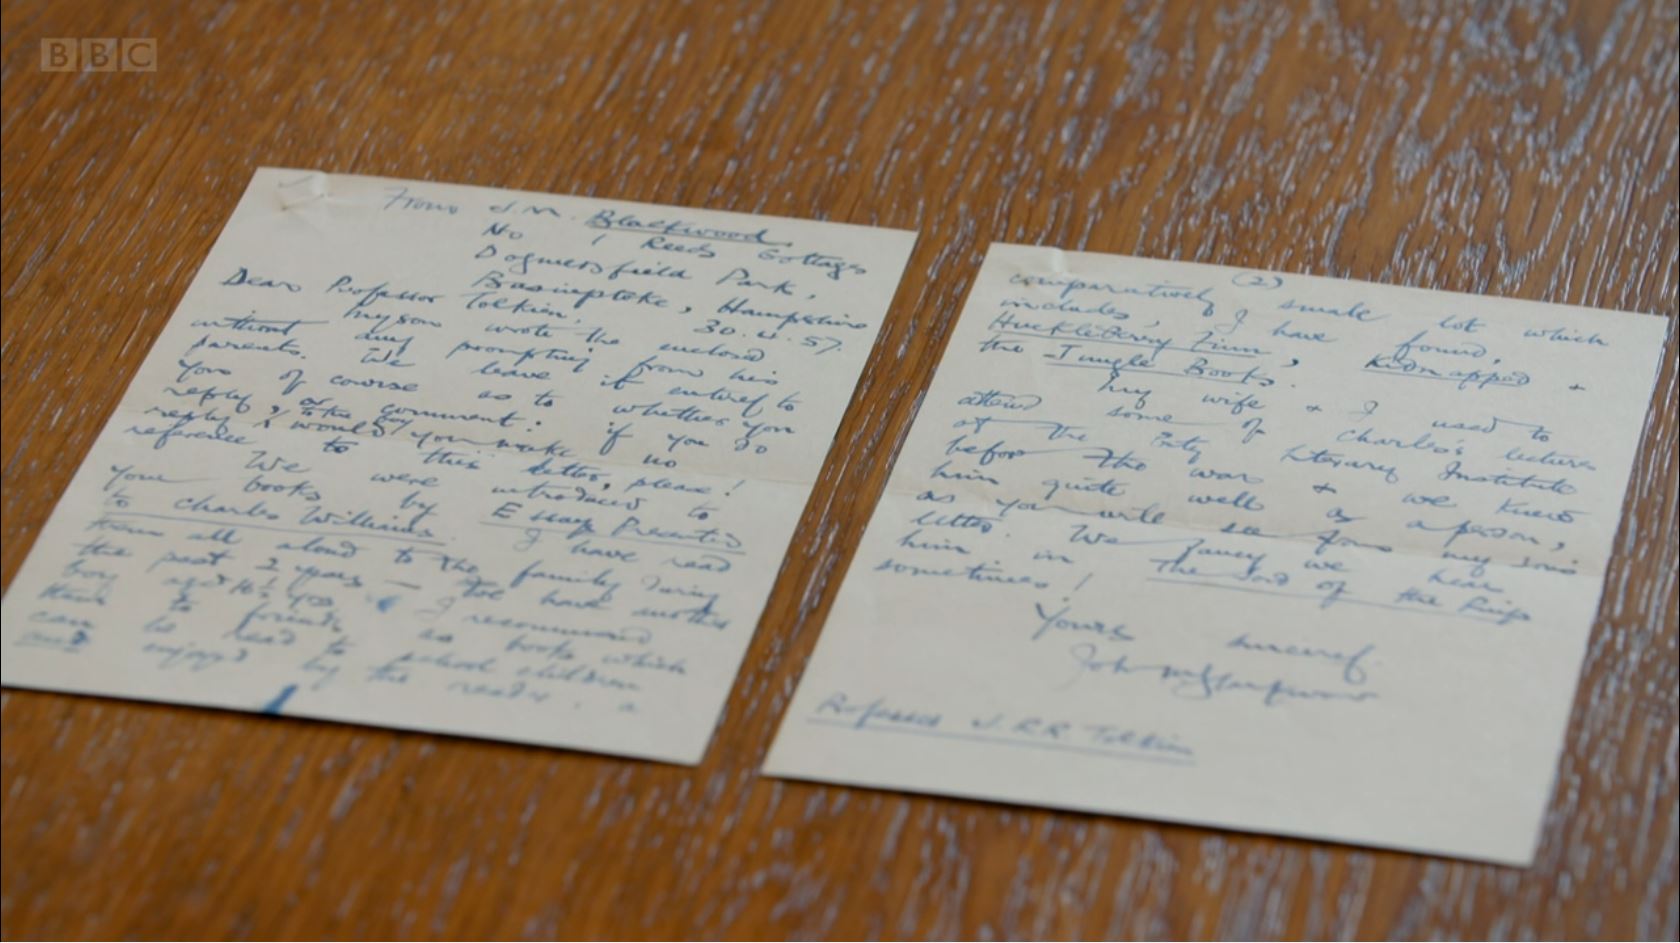 BBC
From J.M. Blackwood.
No 1 Reeds Cottages
Dogmersfield Park,
Basingstoke, Hampshire
30.4.57.
Dear Professor Tolkien.
My son wrote the enclosed
without any prompting from his
parents. We leave it entirely to
you of course as to whether you
reply, or comment: if you do
reply to the boy would you make no
reference to this letter, please!
We were introduced to
your books by Essays Presented
to Charles Williams. I have read
them all aloud to the family during
the past 2 years — We have another
boy aged I recommend
them to friends as books which
can be read to school children
and enjoyed by the reader. a
(2)
comparatively small lot which
includes, I have found,
Huckleberry Finn, Kidnapped +
the Jungle Books.
My wife + I used to
attend some of Charles's lectures
at the City Literary Institute
before the war + we knew
him quite well as a person,
as you will see from my son's
letter. We fancy we hear
him in The Lord of the Rings
sometimes!
Yours sincerely.
Professor J.R.R. Tolkien